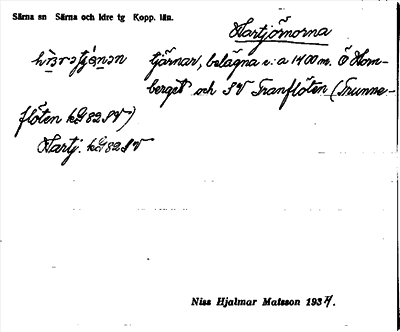 Särna sn Särna och Idre tg Kopp. län.
Hartjärnorna
tjärnar, belägna c:a 1400 m. Ö Hom-
berget och SV Tranflöten (Trunne-
flöten kG 82 SV)
Hartj. kG 82 SV
Niss Hjalmar Matsson 1937.